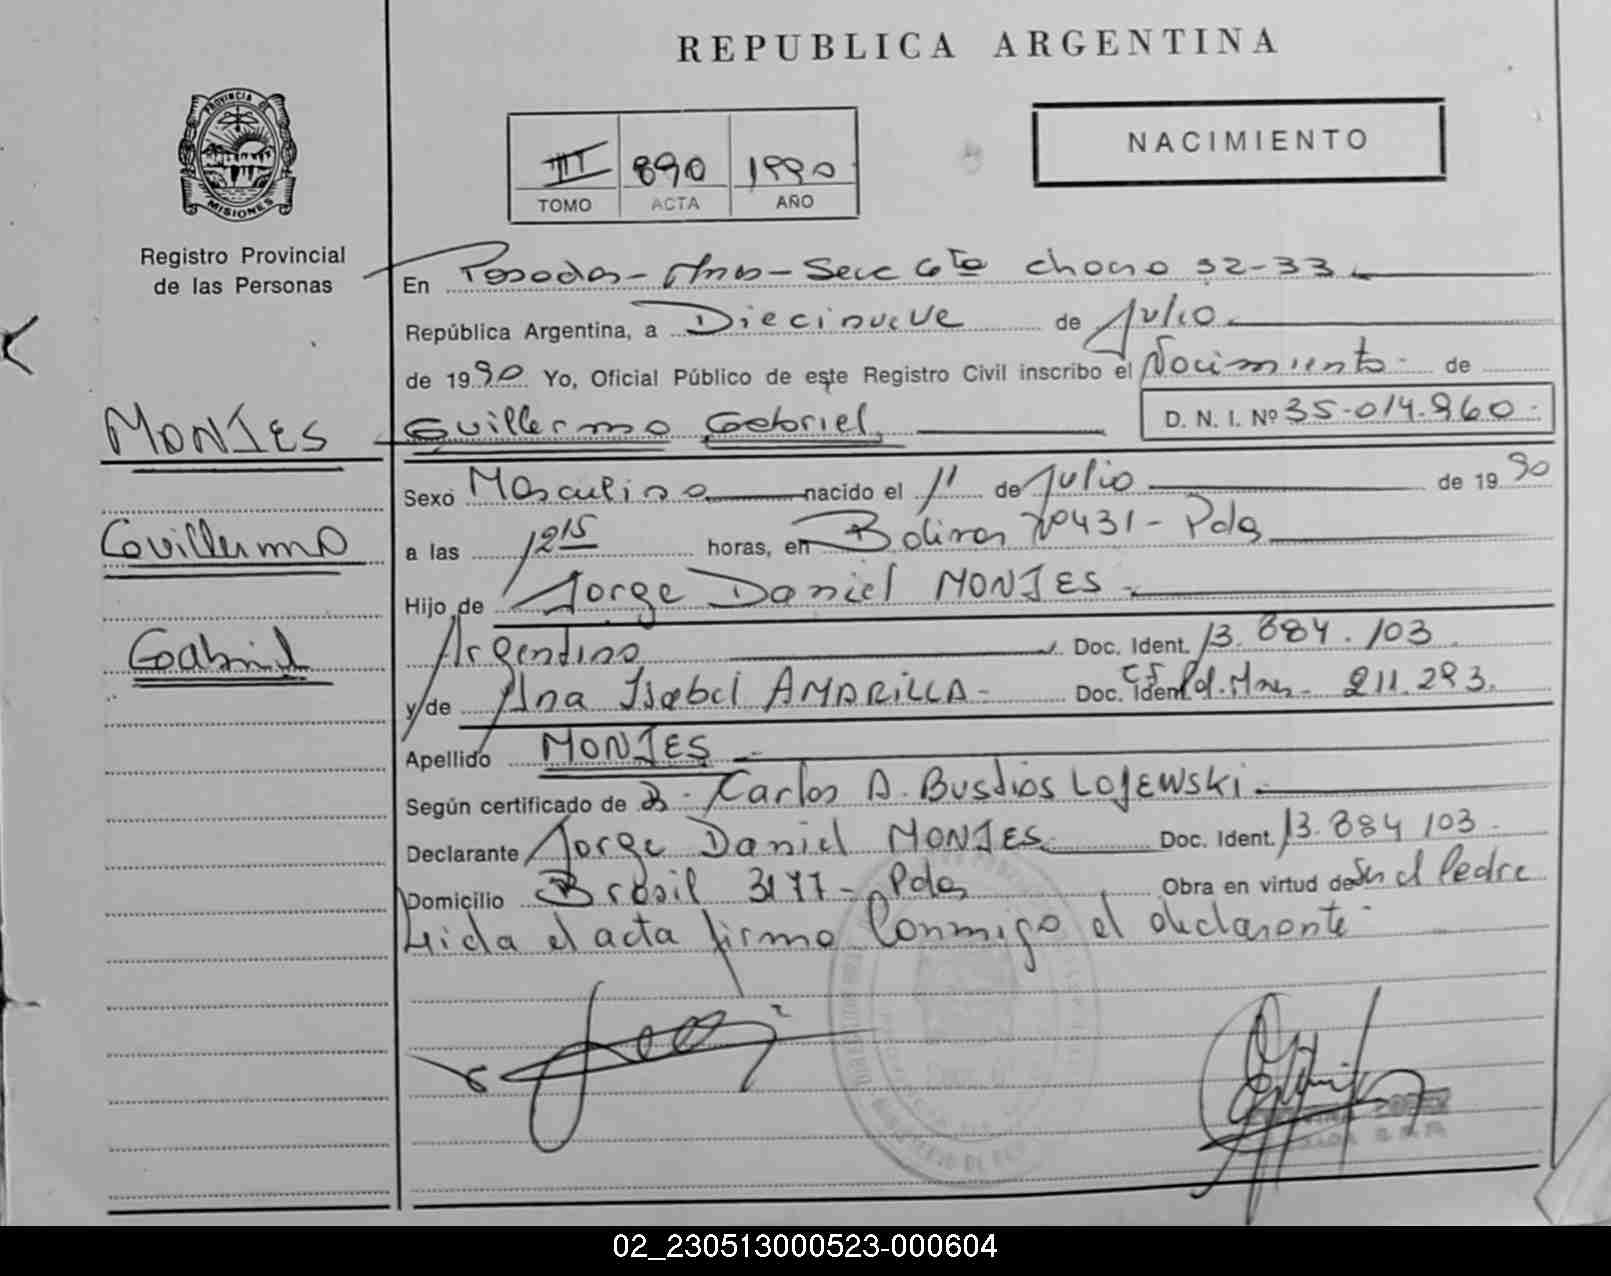 REPUBLICA ARGENTINA
PROVINCIA DE
MISIONES
Registro Provincial
de las Personas
III 890 1990
TOMO ACTA AÑO
NACIMIENTO
En Posadas - Mnes - Secc 6ta chaco 32-33
República Argentina, a Diecinueve de Julio
de 1990 Yo, Oficial Público de este Registro Civil inscribo el Nacimiento de
Guillermo Gabriel D. N. I. Nº 35.014.960
MONJES
Guillermo
Gabriel
Sexo Masculino nacido el 11 de Julio de 1990
a las 12 15 horas, en Bolivar Nº 431 - Pdas
Hijo de Jorge Daniel MONJES
Argentino Doc. Ident. 13.884.103
y de Ana Isabel AMARILLA - Doc. Ident. Mnes - 211.293.
Apellido MONJES
Según certificado de Dr. Carlos A. Bustios LOJEWSKI
Declarante Jorge Daniel MONJES Doc. Ident. 13.884 103
Domicilio Brasil 3177 - Pdas Obra en virtud de Ser el Padre
Leida el acta firma Conmigo el declarante
02_230513000523-000604